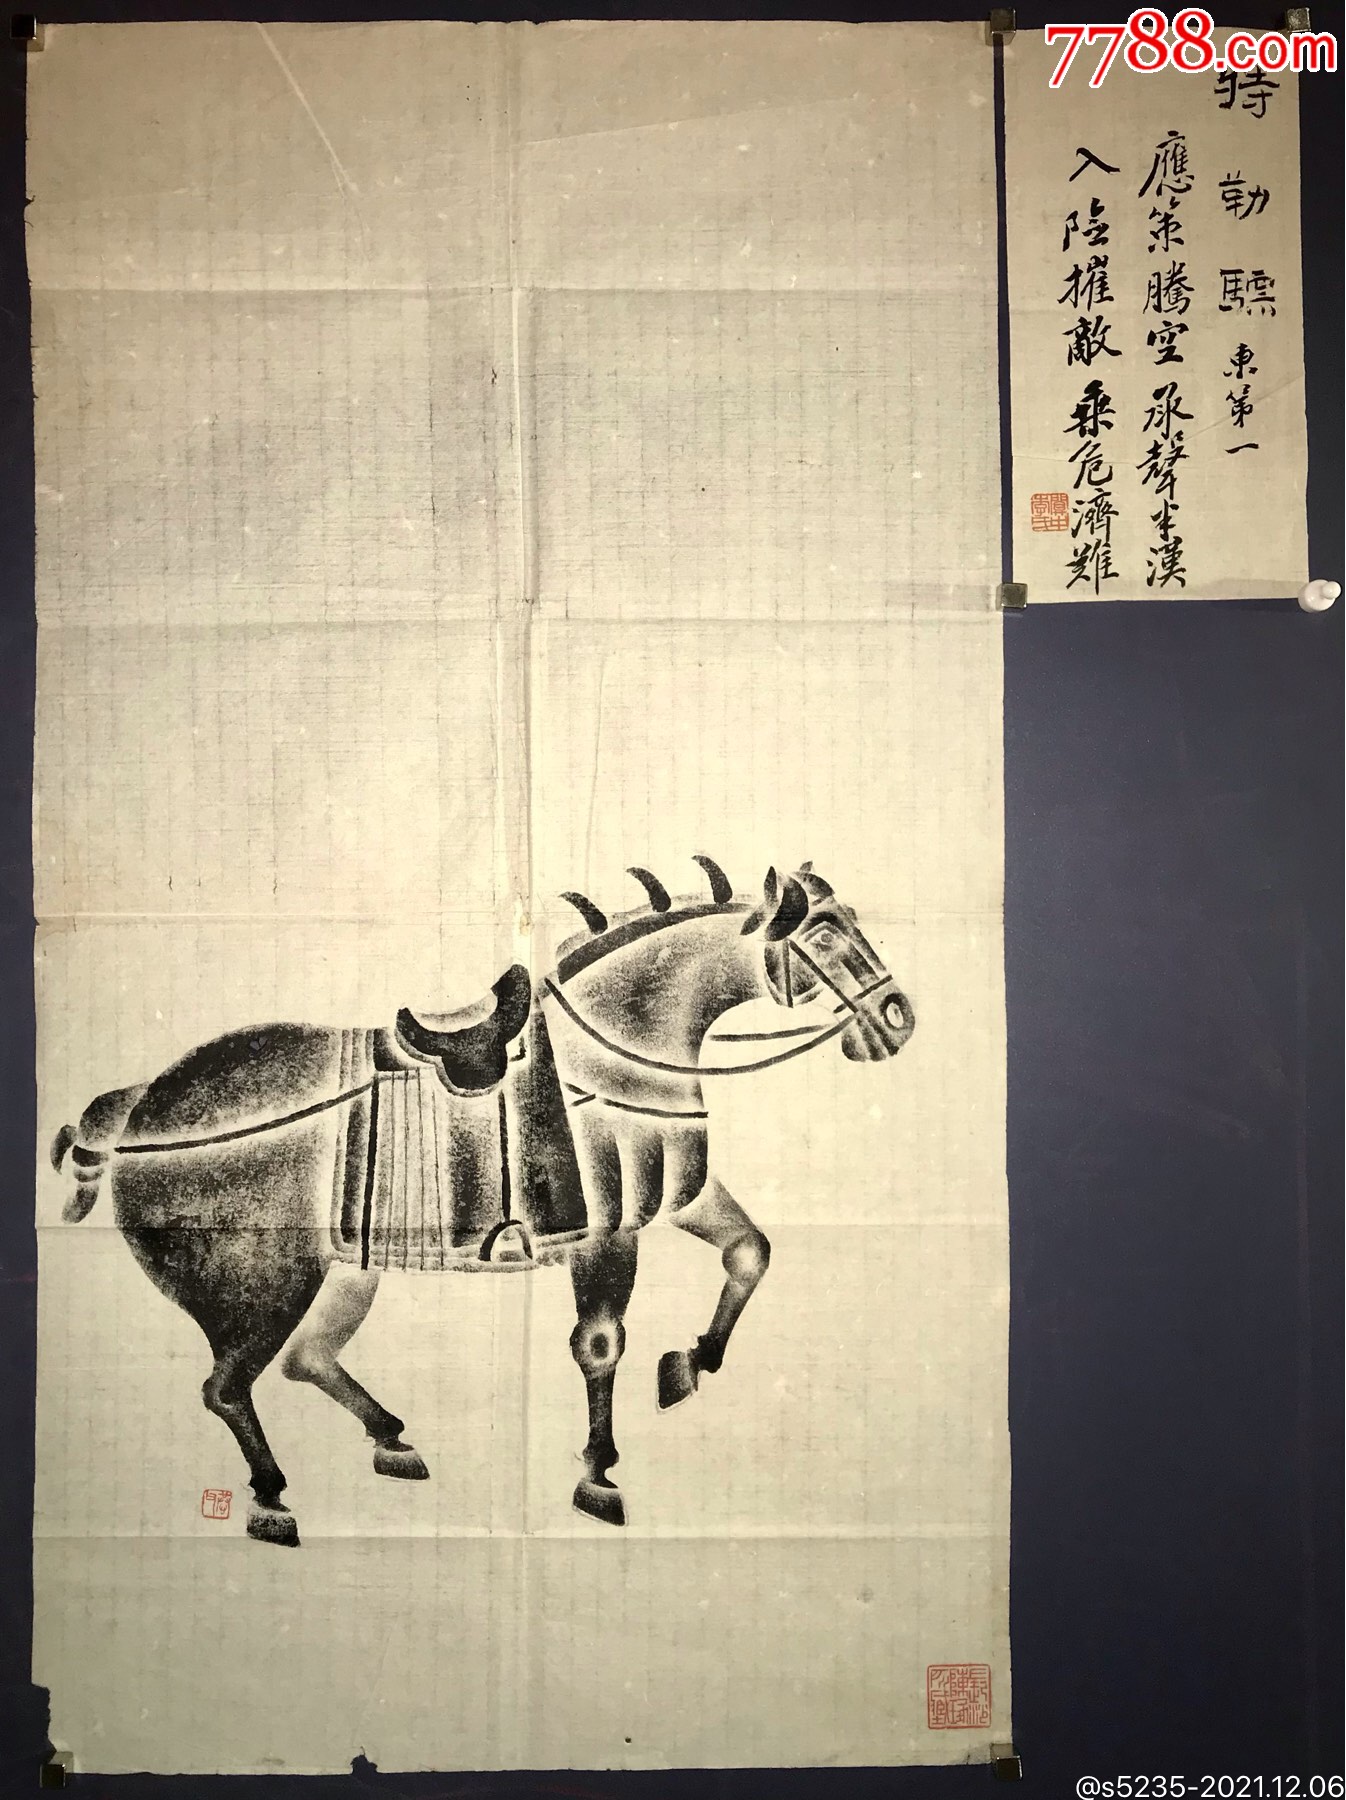 7788.com
特勒驃 東第一
應策騰空 承聲半漢
入險摧敵 乗危濟難
@s5235-2021.12.06